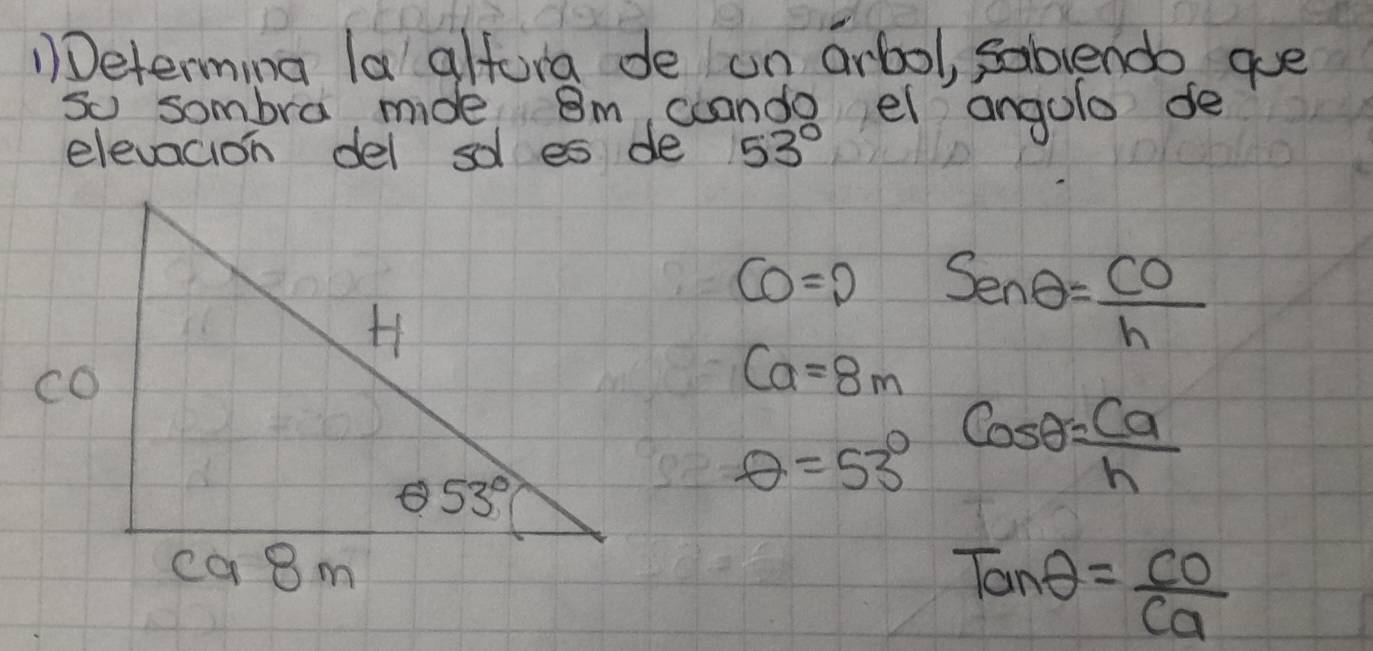 1) Determina la altura de un árbol, sabiendo que
su sombra mide 8m cuando el angulo de
elevación del sol es de 53°
CO=?
Senθ=CO/h
H
CO
Ca=8m
Cosθ=Ca/h
θ=53°
θ53°
ca 8m
Tanθ=CO/Ca